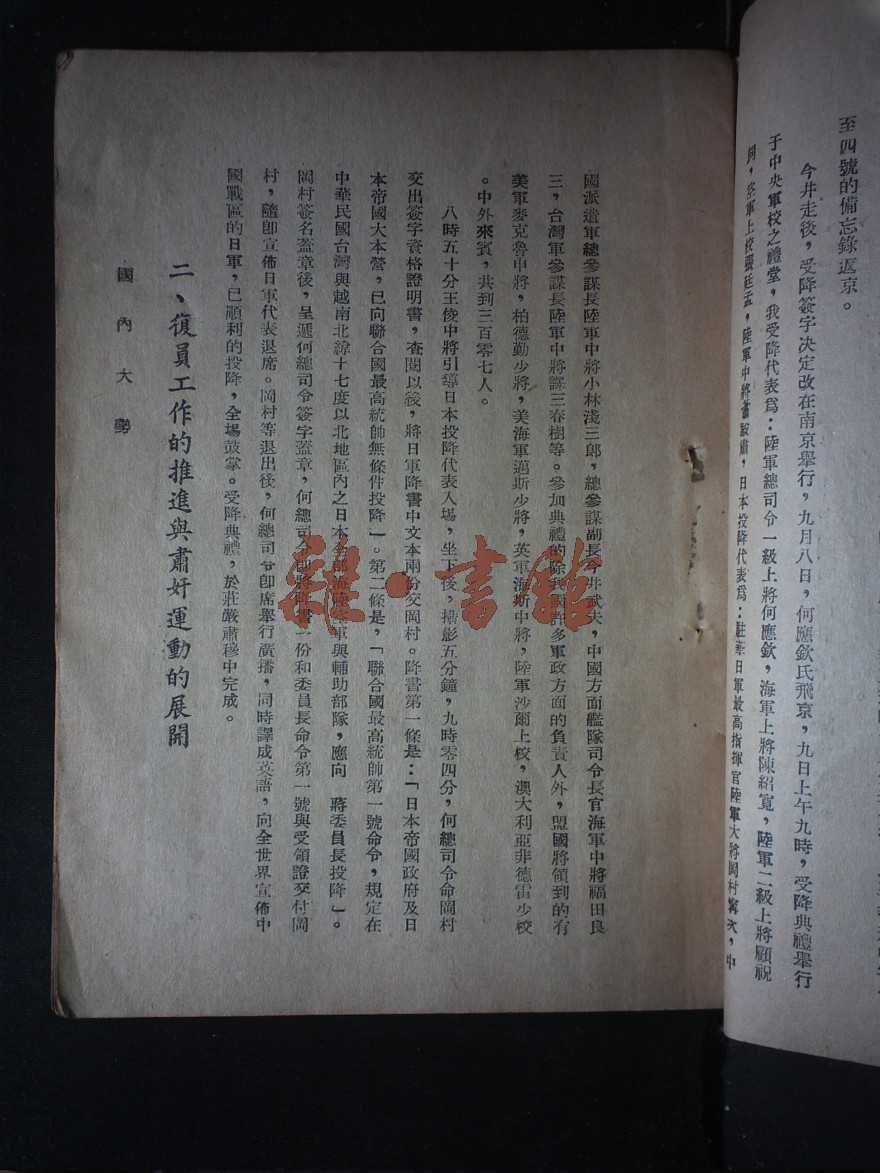 至四號的備忘錄返京。
今井走後，受降簽字決定改在南京舉行，九月八日，何應欽氏飛京，九日上午九時，受降典禮舉行
于中央軍校之禮堂，我受降代表爲：陸軍總司令一級上將何應欽，海軍上將陳紹寬，陸軍二級上將顧祝
同，空軍上校張廷孟，陸軍中將蕭毅肅，日本投降代表爲：駐華日軍最高指揮官陸軍大將岡村寧次，中
國派遣軍總參謀長陸軍中將小林淺三郎，總參謀副長今井武夫，中國方面艦隊司令長官海軍中將福田良
三，台灣軍參謀長陸軍中將諫三春樹等。參加典禮的除我國許多軍政方面的負責人外，盟國將領到的有
美軍麥克魯中將，柏德勤少將，美海軍邁斯少將，英軍海斯中將，陸軍沙爾上校，澳大利亞非德雷少校
。中外來賓，共到三百零七人。
八時五十分王俊中將引導日本投降代表入場，坐下後，攝影五分鐘，九時零四分，何總司令命岡村
交出簽字資格證明書，查閱以後，將日軍降書中文本兩份交岡村。降書第一條是：「日本帝國政府及日
本帝國大本營，已向聯合國最高統帥無條件投降」。第二條是，「聯合國最高統帥第一號命令，規定在
中華民國台灣與越南北緯十七度以北地區內之日本全部海陸空軍與輔助部隊，應向　蔣委員長投降」。
岡村簽名蓋章後，呈遞何總司令簽字蓋章，何總司令即將降書一份和委員長命令第一號與受領證交付岡
村，隨卽宣佈日軍代表退席。岡村等退出後，何總司令卽席舉行廣播，同時譯成英語，向全世界宣佈中
國戰區的日軍，已順利的投降，全場鼓掌。受降典禮，於莊嚴肅穆中完成。
二、復員工作的推進與肅奸運動的展開
國內大勢
雜·書館